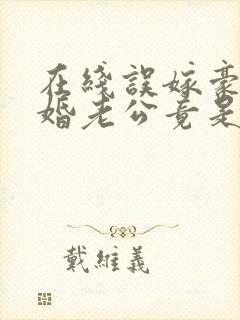 在綫誤嫁豪
婚老公竟是
戴維義